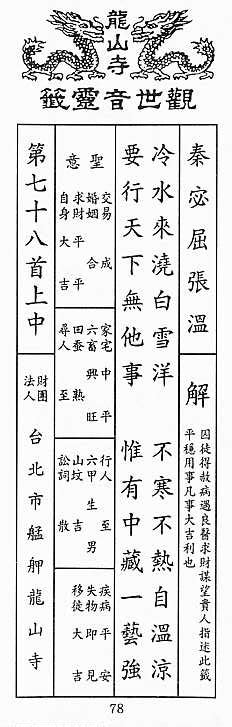 龍山寺
觀世音靈籤
秦宓屈張溫
解
因徒得赦病遇良醫求財謀望貴人指述此籤
平穩用事凡事大吉利也
冷水來澆白雪洋 不寒不熱自溫涼
要行天下無他事 惟有中藏一藝強
聖意
交易 成
婚姻 合
求財 平
自身 大吉
家宅 中平
六畜 興旺
田蠶 熟
尋人 至
行人 至
六甲 生男
山墳 吉
訟詞 散
疾病 平安
失物 即見
移徙 大吉
第七十八首上中
財團法人
台北市艋舺龍山寺
78